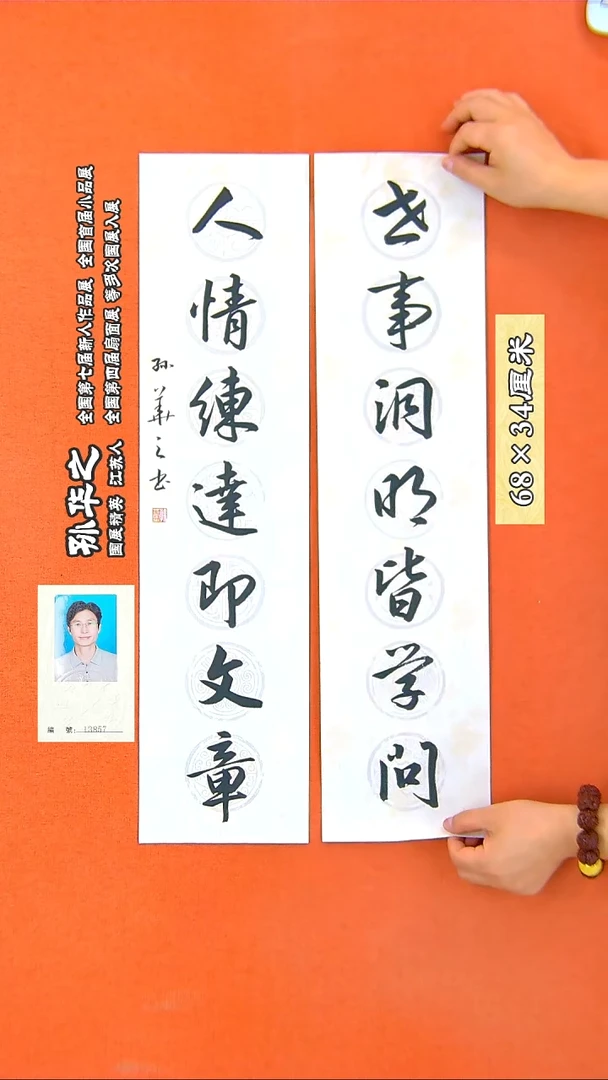 世事洞明皆学问
人情練達即文章
孙華之书
68×34厘米
孙华之
国展精英 江苏人
全国第七届新人作品展 全国首届小品展
全国第四届扇面展 等多次国展入展
編 號: 13857